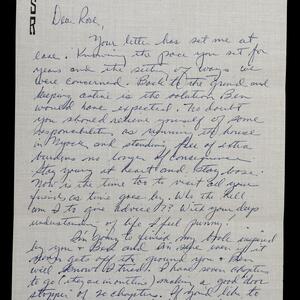 Dear Rose,
Your letter has set me at
ease. Knowing the pace you set for
years and the setting of ways we
were concerned. Back to the grind and
keeping active is the solution Ben
would have expected. No doubt
you should relieve yourself of some
responsibility as running the house
in Nyack and standing free of extra
burdens no longer of consequence
Stay young at heart and stay loose.
Now is the time too to visit all your
friends as time goes by. Who the hell
am I to give advice? With your
understanding of life I feel funny.
I'm going to finish my book inspired
by you & Ben and
gets off the ground you & Ben
will know I tried. I have seven chapters
to go making a good door
stopper of 20 chapters. If you'd like to